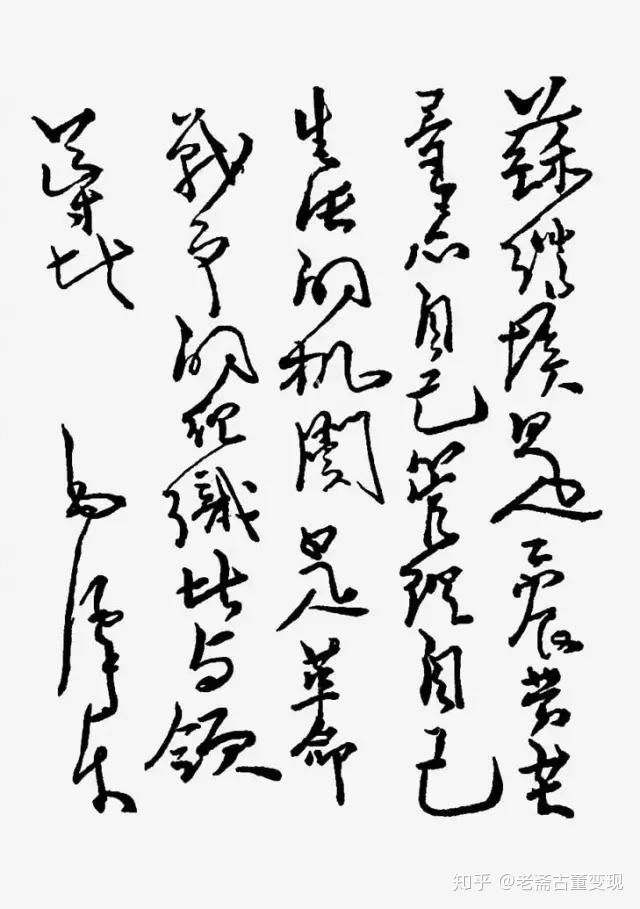 蘇維埃是工農劳苦
羣众自己管理自己
生活的机關是革命
戰争的组織者与領
導者
毛澤东
知乎 @老斋古董变现